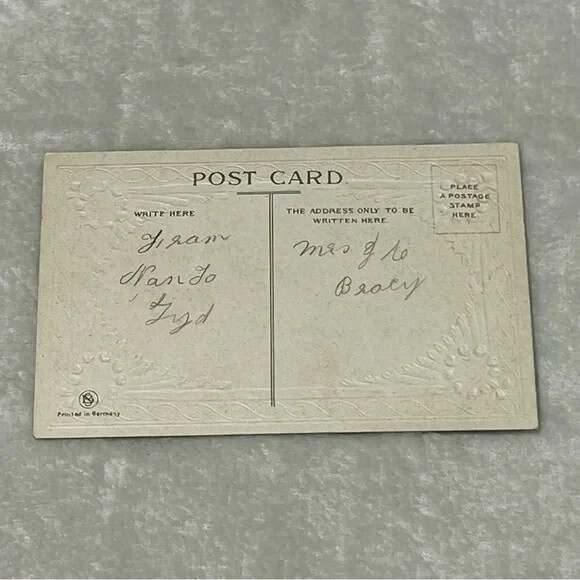 POST CARD
WRITE HERE
THE ADDRESS ONLY TO BE
WRITTEN HERE
PLACE
A POSTAGE
STAMP
HERE
Fram
Nan To
Fyd
Mrs J C
Bracy
Printed in Germany